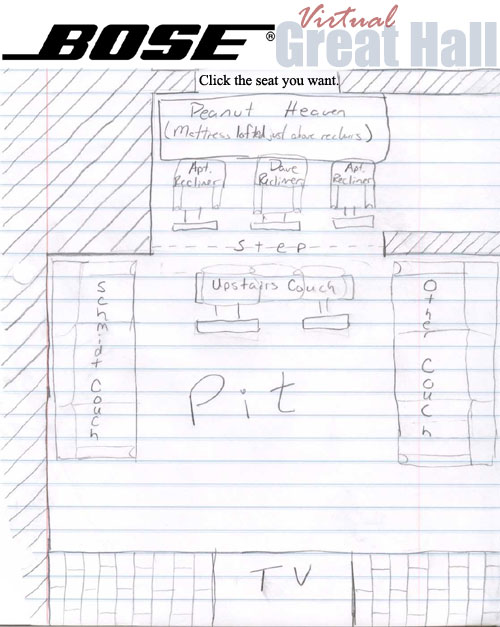 BOSE® Virtual
Great Hall
Click the seat you want.
Peanut Heaven
(Mattress lofted just above recliners)
Apt. Recliner
Dave Recliner
Apt. Recliner
Step
Schmidt Couch
Upstairs Couch
Other Couch
Pit
TV